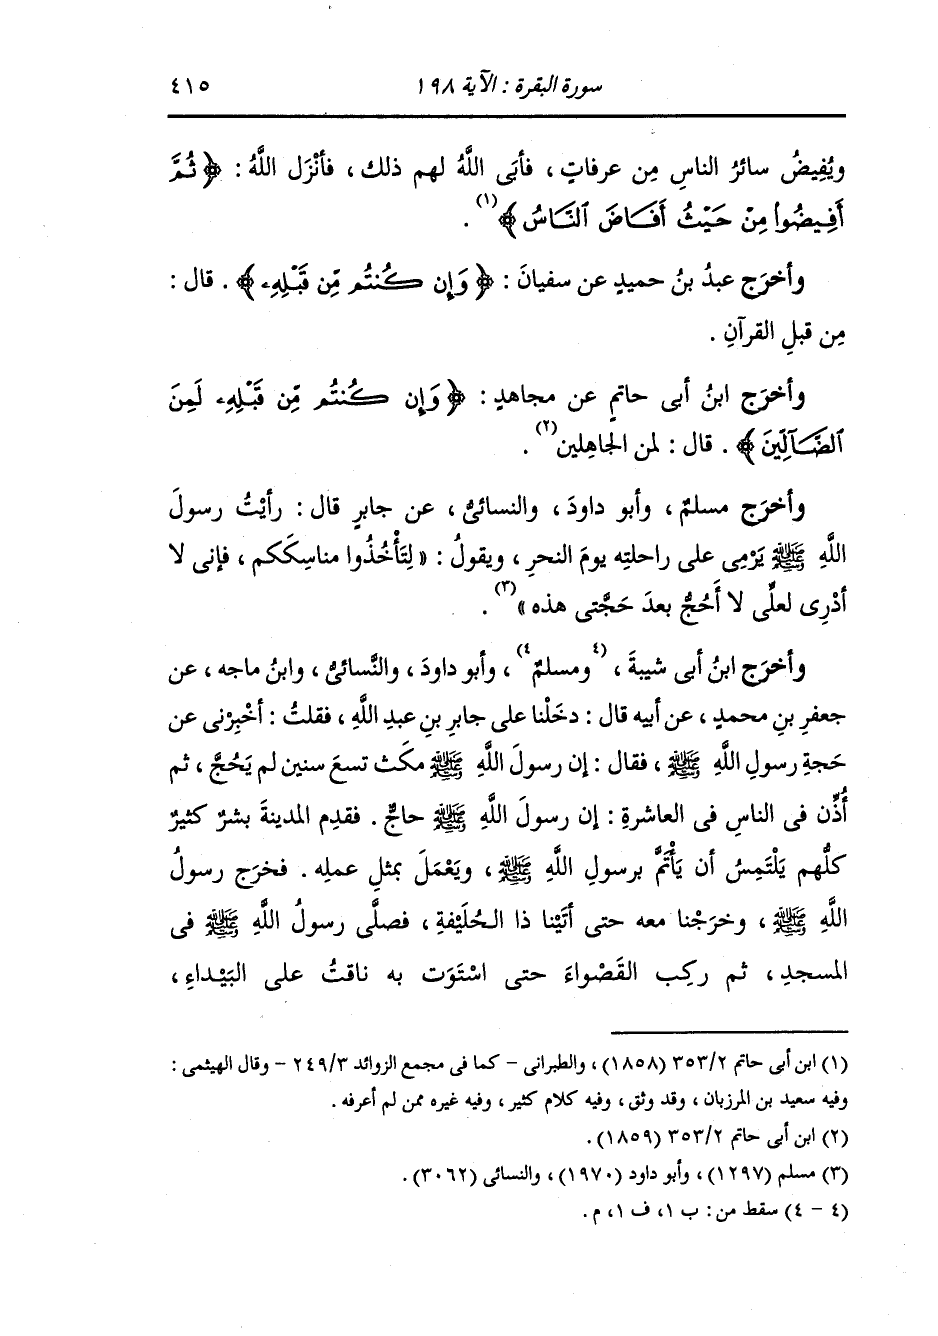 سورة البقرة : الآية ١٩٨ ٤١٥
ويُفِيضُ سائرُ الناسِ مِن عرفاتٍ ، فأبَى اللَّهُ لهم ذلك ، فأنْزَل اللَّهُ : ﴿ ثُمَّ
أَفِيضُوا۟ مِنْ حَيْثُ أَفَاضَ ٱلنَّاسُ ﴾(١) .
وأخرَج عبدُ بنُ حميدٍ عن سفيانَ : ﴿ وَإِن كُنتُم مِّن قَبْلِهِۦ ﴾ . قال :
مِن قبلِ القرآنِ .
وأخرَج ابنُ أبى حاتمٍ عن مجاهدٍ : ﴿ وَإِن كُنتُم مِّن قَبْلِهِۦ لَمِنَ
ٱلضَّآلِّينَ ﴾ . قال : لمن الجاهِلين(٢) .
وأخرَج مسلمٌ ، وأبو داودَ ، والنسائىُّ ، عن جابرٍ قال : رأيْتُ رسولَ
اللَّهِ ﷺ يَرْمِى على راحلتِه يومَ النحرِ ، ويقولُ : « لِتَأْخُذُوا مناسِكَكم ، فإنى لا
أدْرِى لعلِّى لا أَحُجُّ بعدَ حَجَّتى هذه »(٣) .
وأخرَج ابنُ أبى شيبةَ ، (٤ومسلمٌ٤) ، وأبو داودَ ، والنَّسائىُّ ، وابنُ ماجه ، عن
جعفرِ بنِ محمدٍ ، عن أبيه قال : دخَلْنا على جابرِ بنِ عبدِ اللَّهِ ، فقلتُ : أخْبِرْنى عن
حَجةِ رسولِ اللَّهِ ﷺ ، فقال : إن رسولَ اللَّهِ ﷺ مكَث تسعَ سنين لم يَحُجَّ ، ثم
أُذِّن فى الناسِ فى العاشرةِ : إن رسولَ اللَّهِ ﷺ حاجٌّ . فقدِم المدينةَ بشرٌ كثيرٌ
كلُّهم يَلْتَمِسُ أن يَأْتَمَّ برسولِ اللَّهِ ﷺ ، ويَعْمَلَ بمثلِ عملِه . فخرَج رسولُ
اللَّهِ ﷺ ، وخرَجْنا معه حتى أتَيْنا ذا الحُلَيْفةِ ، فصلَّى رسولُ اللَّهِ ﷺ فى
المسجدِ ، ثم ركِب القَصْواءَ حتى اسْتَوَت به ناقتُ على البَيْداءِ ،
(١) ابن أبى حاتم ٣٥٣/٢ (١٨٥٨) ، والطبرانى – كما فى مجمع الزوائد ٢٤٩/٣ – وقال الهيثمى :
وفيه سعيد بن المرزبان ، وقد وثق ، وفيه كلام كثير ، وفيه غيره ممن لم أعرفه .
(٢) ابن أبى حاتم ٣٥٣/٢ (١٨٥٩) .
(٣) مسلم (١٢٩٧) ، وأبو داود (١٩٧٠) ، والنسائى (٣٠٦٢) .
(٤ – ٤) سقط من : ب ١، ف ١، م .